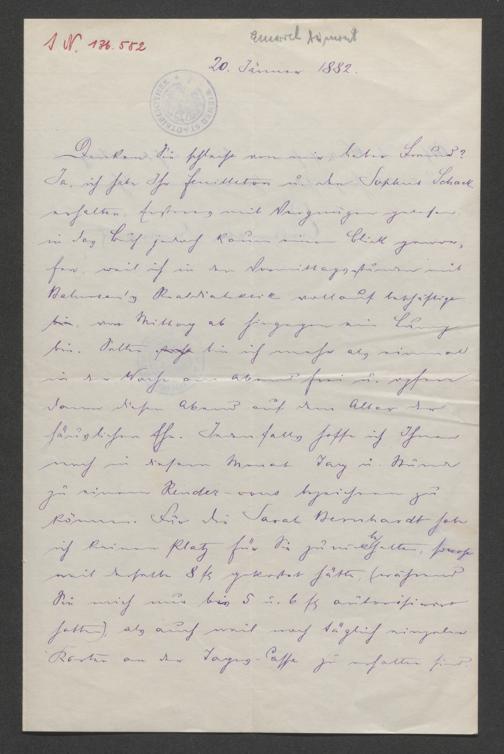 I. N. 136.552
20. Jänner 1882.
Denken Sie schlecht von mir lieber Freund?
Ja, ich habe Ihr Feuilleton u. den Sophus Schack
erhalten, Ersteres mit Vergnügen gelesen
in das Buch jedoch kaum einen Blick gewor-
fen, weil ich in den Vormittagsstunden mit
Bahnsen's Realdialektik vollauf beschäftigt
bin, von Mittag ab hingegen ein
bin. Selten bin ich mehr als einmal
in der Woche am Abend frei u. opfere
dann diesen Abend auf dem Altar der
häuslichen Ehe. Jedenfalls hoffe ich Ihnen
noch in diesem Monat Tag u. Stunde
zu einem Rendez-vous bezeichnen zu
können. Für die Sarah Bernhardt habe
ich keinen Platz für Sie zurückbehalten, sowohl
weil derselbe 8 fl gekostet hätte, (während
Sie mich nur bis 5 u. 6 fl autorisirt
hatten), als auch weil noch täglich einzelne
Karten an der Tages-Casse zu erhalten sind.